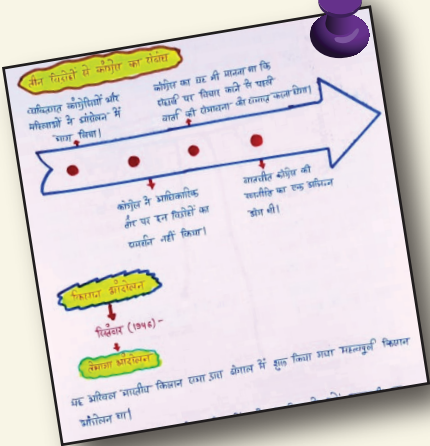 तीन विद्रोहों से काँग्रेस का संबंध
व्यक्तिगत काँग्रेसियों और
महिलाओं ने आंदोलन में
भाग लिया।
काँग्रेस का यह भी मानना था कि
संघर्ष पर विचार करने से पहले
वार्ता की संभावना को समाप्त करना होगा।
काँग्रेस ने आधिकारिक
तौर पर इन विद्रोहों का
समर्थन नहीं किया।
बातचीत काँग्रेस की
रणनीति का एक अभिन्न
अंग थी।
किसान आंदोलन
सितंबर (1946) -
तेभागा आंदोलन
यह अखिल भारतीय किसान सभा द्वारा बंगाल में शुरू किया गया महत्वपूर्ण किसान
आंदोलन था।